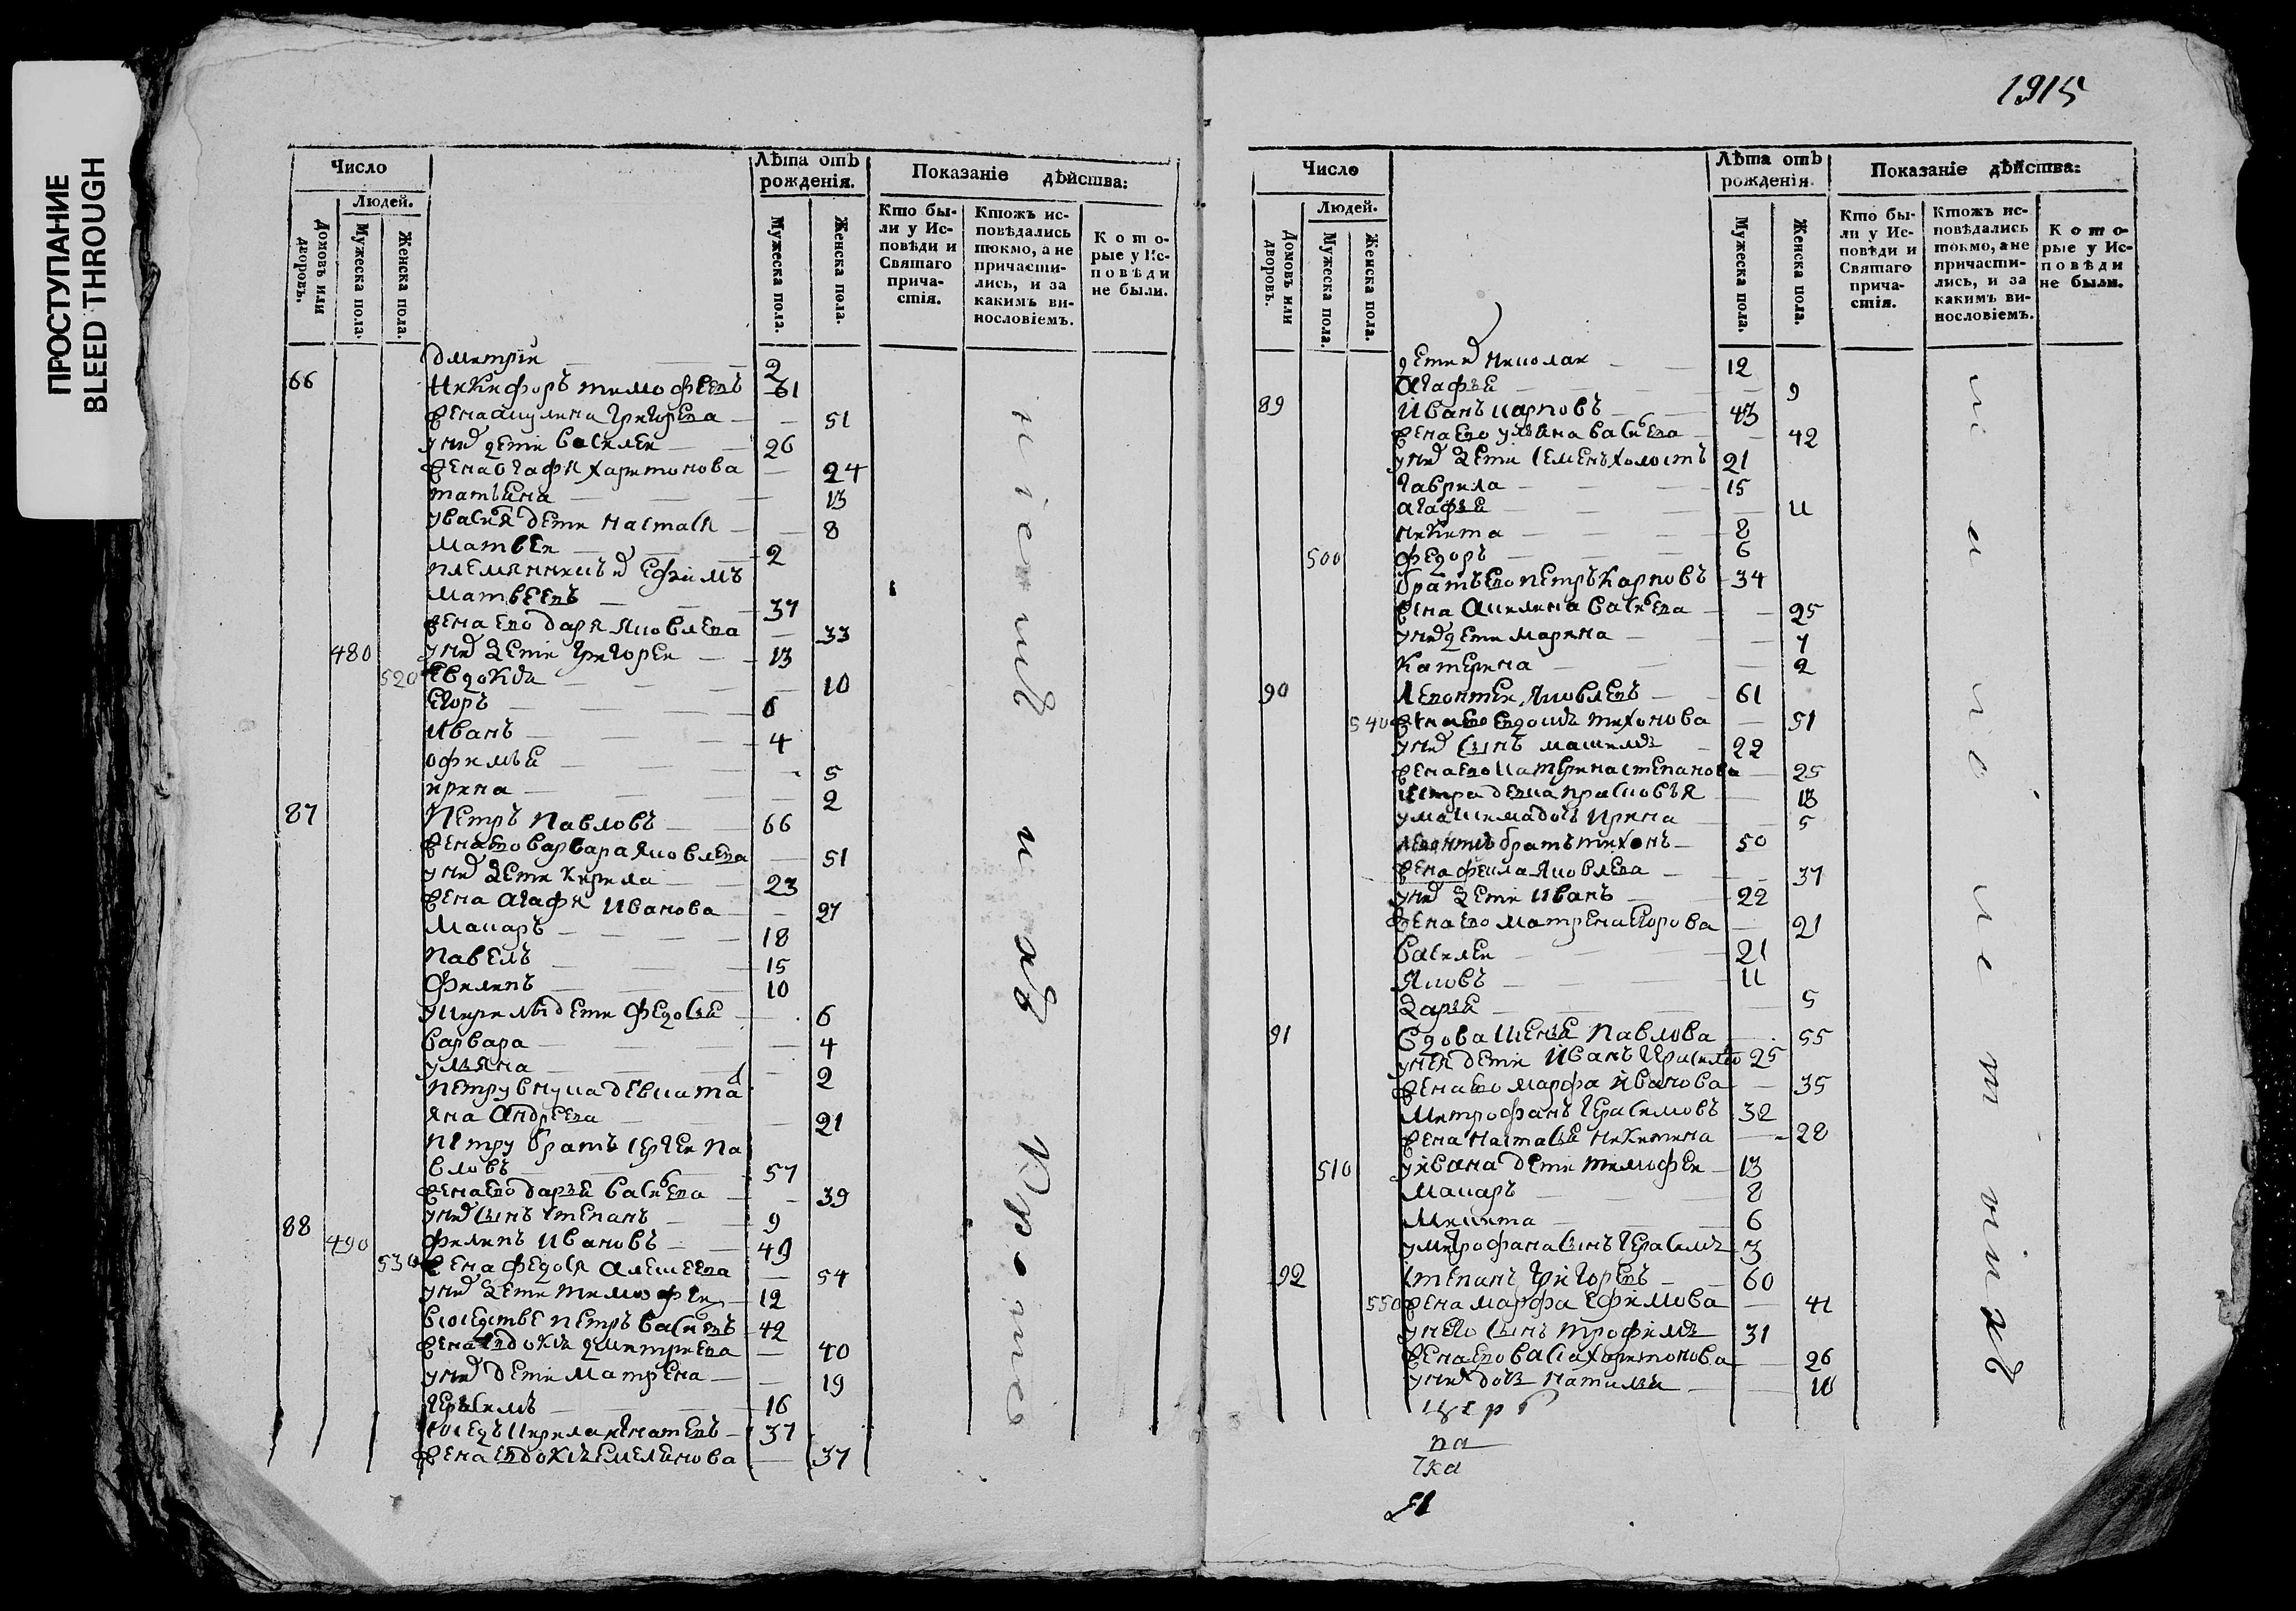 ПРОСТУПАНИЕ
BLEED THROUGH
1915
Число
Людей.
Домовъ или дворовъ.
Мужеска пола.
Женска пола.
Лѣта отъ рожденія.
Мужеска пола.
Женска пола.
Показаніе дѣйства:
Кто были у Исповѣди и Святаго причастія.
Ктожъ исповѣдались токмо, а не причастились, и за какимъ винословіемъ.
Которые у Исповѣди не были.
дмитрій 2
66 Никифоръ тимофѣевъ 61
жена акулина григорева 51
у них дети василеи 26
жена огафя харитонова 24
татьяна 13
у вася дети настася 8
матвеи 2
племянникъ ефимъ
матвеевъ 37
жена ево даря яковлева 33
480 у них дети григореи 13
520 евдокя 10
егоръ 6
иванъ 4
офимья 5
ирина 2
87 Петръ Павловъ 66
жена ево варвара яковлева 51
у них дети кирила 23
жена агафя иванова 27
макаръ 18
павелъ 15
филипъ 10
у кирилы дети федосья 6
варвара 4
ульяна 2
петру внука девка татя
яна андреева 21
петру братъ сергеи па
вловъ 57
жена ево дарья васиева 39
у них сынъ степанъ 9
88 490 филипъ ивановъ 49
530 жена федося алексеева 54
у них дети тимофеи 12
в соседстве петръ васиевъ 42
жена евдокя дмитриева 40
у них дети матрена 19
герасимъ 16
соседъ кирила игнатевъ 37
жена евдокя емелянова 37
Число
Людей.
Домовъ или дворовъ.
Мужеска пола.
Женска пола.
Лѣта отъ рожденія.
Мужеска пола.
Женска пола.
Показаніе дѣйства:
Кто были у Исповѣди и Святаго причастія.
Ктожъ исповѣдались токмо, а не причастились, и за какимъ винословіемъ.
Которые у Исповѣди не были.
дети николаи 12
Агафья 9
89 Иванъ карповъ 43
жена ево ульяна васиева 42
у них дети семенъ холостъ 21
гаврила 15
агафья 11
никита 8
500 федоръ 6
братъ ево петръ карповъ 34
жена акилина васиева 25
у них дети марина 7
катерина 2
90 Левонтеи яковлевъ 61
540 жена ево евдокя тихонова 51
у них сынъ максимъ 22
жена ево катерина степанова 25
сестра девка прасковья 13
у максима дочь ирина 5
левонтию братъ тихонъ 50
жена фекла яковлева 37
у них дети иванъ 22
жена ево матрена егорова 21
василеи 21
яковъ 11
дарья 5
91 вдова ксенья павлова 55
у нея дети иванъ герасимо 25
жена ево марфа иванова 35
митрофанъ герасимовъ 32
жена настасья никитина 28
510 у ивана дети тимофеи 13
макаръ 8
микита 6
у митрофана сынъ герасимъ 3
92 степанъ григоревъ 60
550 жена марфа ефимова 41
у него сынъ трофимъ 31
жена ево васса харитонова 26
у них дочь наталья 10